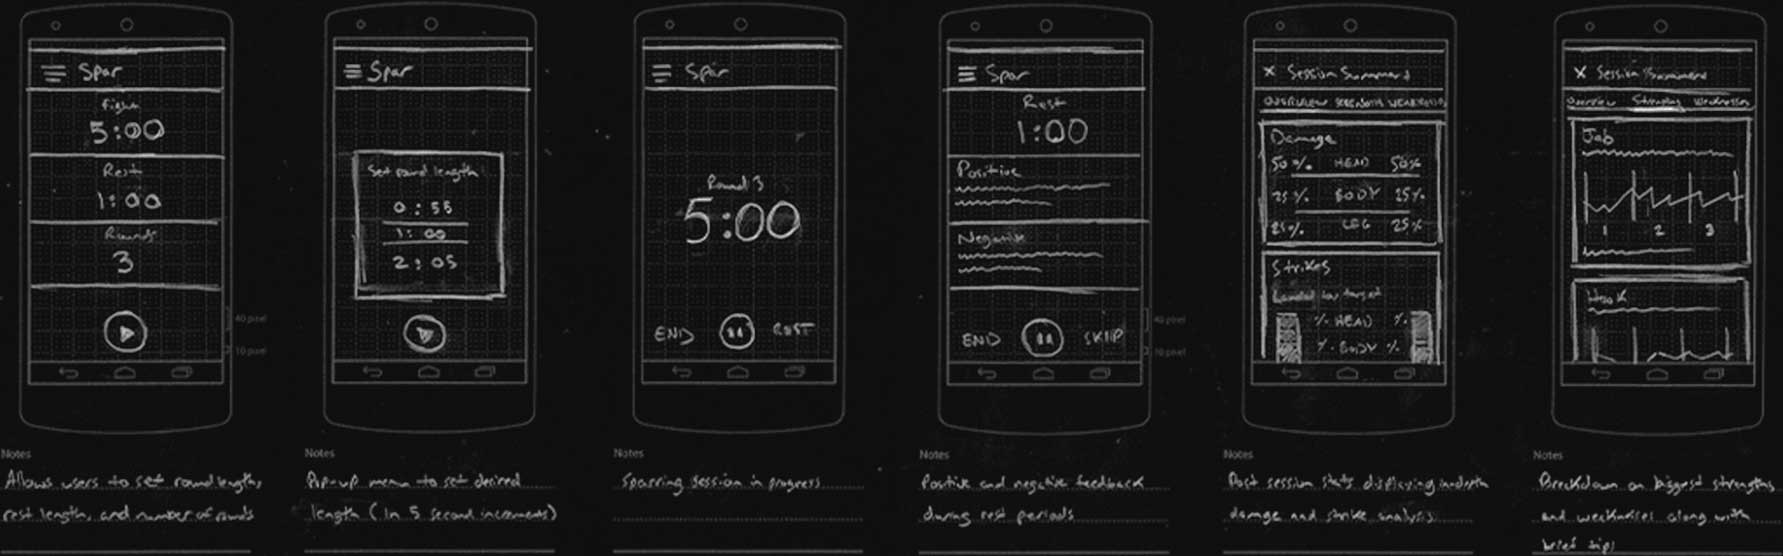 Spar
Fight
5:00
Rest
1:00
Rounds
3
40 pixel
10 pixel
Notes
Allows users to set round length,
rest length, and number of rounds
Spar
Set round length
0:55
1:00
2:05
Notes
Pop-up menu to set desired
length (in 5 second increments)
Spar
Round 3
5:00
END
REST
Notes
Sparring session in progress
Spar
Rest
1:00
Positive
Negative
END
SKIP
40 pixel
10 pixel
Notes
Positive and negative feedback
during rest periods
X Session Summary
OVERVIEW STRENGTHS WEAKNESSES
Damage
50% HEAD 50%
25% BODY 25%
25% LEG 25%
Strikes
Landed by target
% HEAD %
% BODY %
Notes
Post session stats displaying indepth
damage and strike analysis
X Session Summary
Overview Strengths Weaknesses
Jab
1 2 3
Hook
Notes
Breakdown on biggest strengths
and weaknesses along with
brief tips